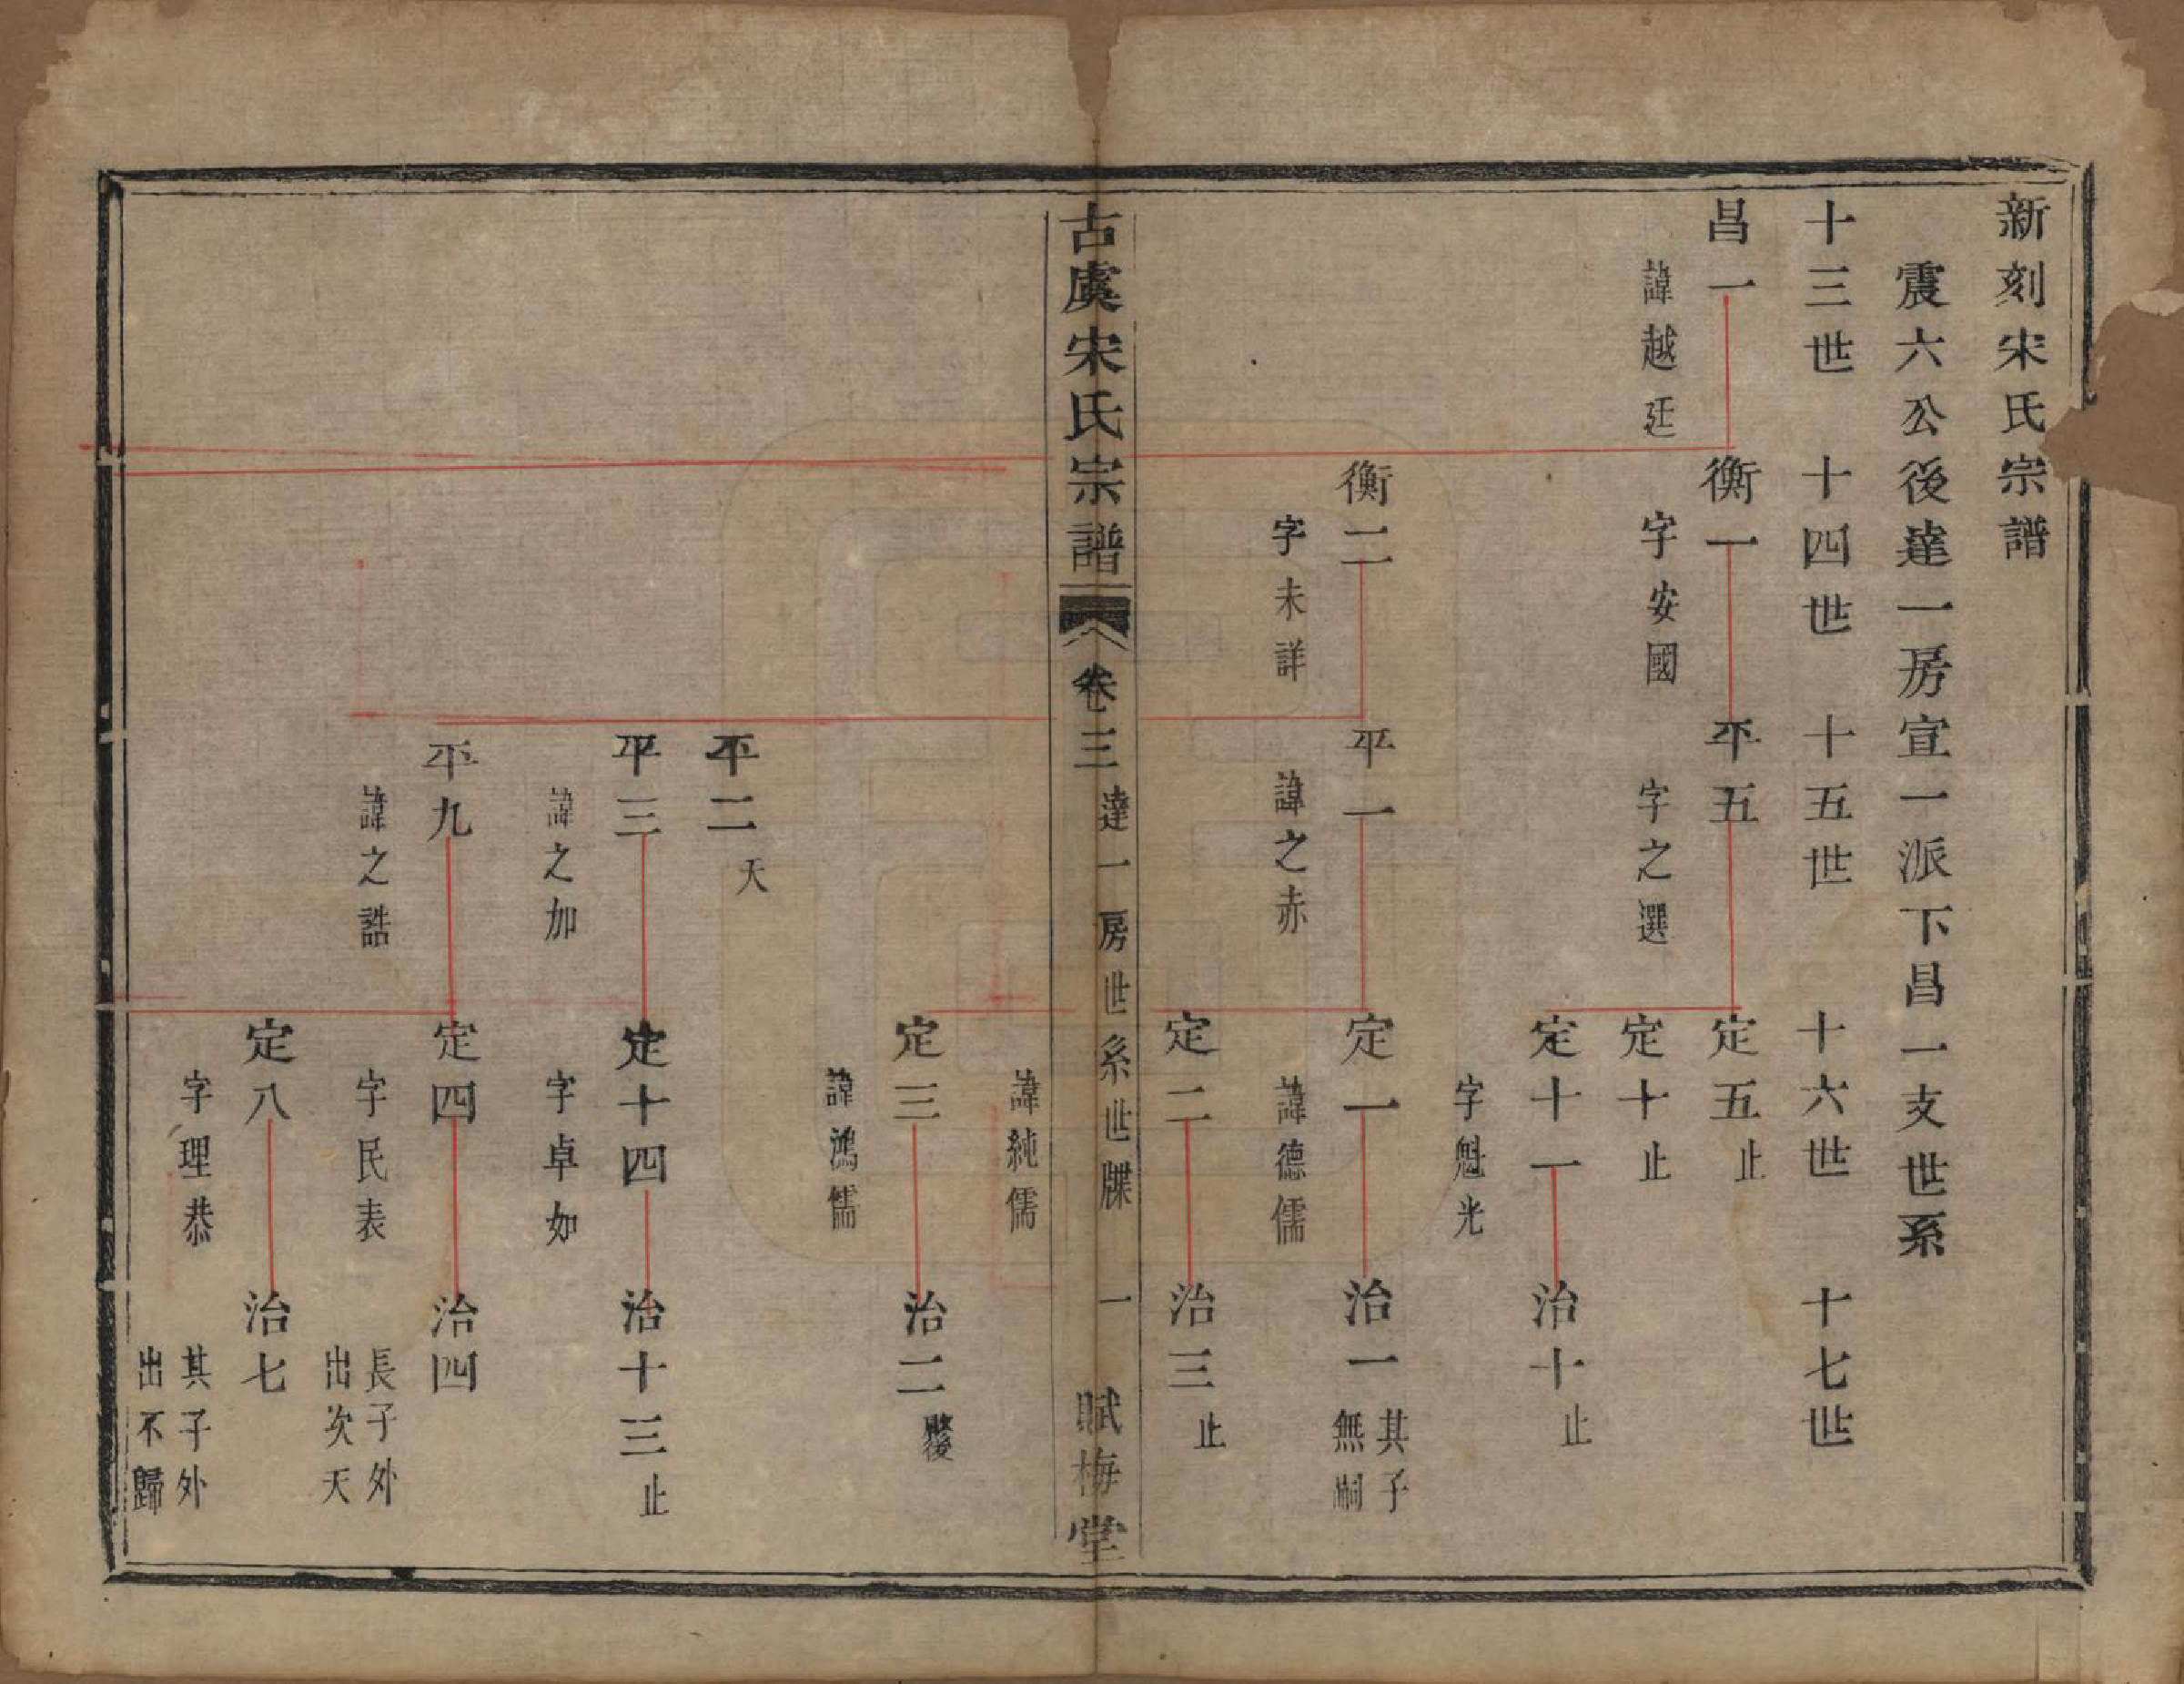 新刻宋氏宗譜
震六公後達一房宣一派下昌一支世系
十三世 十四世 十五世 十六世 十七世
昌一 衡一 平五 定五 止
諱越廷 字安國 字之選
定十 止
定十一 治十 止
字魁光
衡二 平一 定一 治一 其子無嗣
字未詳 諱之赤 諱德儒
定二 治三 止
古虞宋氏宗譜 卷三 達一房世系世牒 一 賦梅堂
諱純儒
定三 治二 後
諱鴻儒
平二 夭
平三 定十四 治十三 止
諱之加 字卓如
平九 定四 治四 長子外出次夭
諱之誥 字民表
定八 治七 其子外出不歸
字理恭